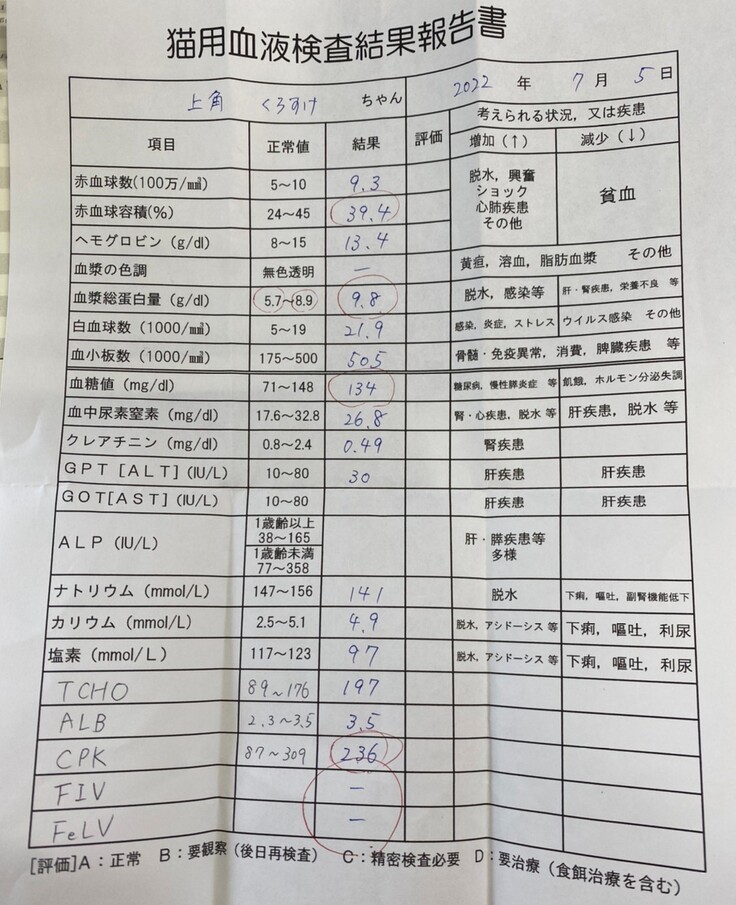 猫用血液検査結果報告書
上角 くろすけ ちゃん 2022 年 7 月 5 日
項目 正常値 結果 評価 考えられる状況，又は疾患
増加（↑） 減少（↓）
赤血球数(100万/m㎡) 5～10 9.3
赤血球容積(%) 24～45 39.4
ヘモグロビン（g/dl） 8～15 13.4
脱水，興奮
ショック
心肺疾患
その他
貧血
血漿の色調 無色透明 － 黄疸，溶血，脂肪血漿 その他
血漿総蛋白量（g/dl） 5.7～8.9 9.8 脱水，感染等 肝・腎疾患，栄養不良 等
白血球数（1000/m㎡） 5～19 21.9 感染，炎症，ストレス ウイルス感染 その他
血小板数（1000/m㎡） 175～500 505 骨髄・免疫異常，消費，脾臓疾患 等
血糖値（mg/dl） 71～148 134 糖尿病，慢性膵炎症 等 飢餓，ホルモン分泌失調
血中尿素窒素（mg/dl） 17.6～32.8 26.8 腎・心疾患，脱水 等 肝疾患，脱水 等
クレアチニン（mg/dl） 0.8～2.4 0.49 腎疾患
GPT［ALT］(IU/L) 10～80 30 肝疾患 肝疾患
GOT[AST]（IU/L） 10～80 肝疾患 肝疾患
ALP（IU/L）
1歳齢以上
38～165
1歳齢未満
77～358
肝・膵疾患等
多様
ナトリウム（mmol/L） 147～156 141 脱水 下痢，嘔吐，副腎機能低下
カリウム（mmol/L） 2.5～5.1 4.9 脱水，アシドーシス 等 下痢，嘔吐，利尿
塩素（mmol/L） 117～123 97 脱水，アシドーシス 等 下痢，嘔吐，利尿
TCHO 89～176 197
ALB 2.3～3.5 3.5
CPK 87～309 236
FIV －
FeLV －
[評価]A：正常 B：要観察（後日再検査） C：精密検査必要 D：要治療（食餌治療を含む）